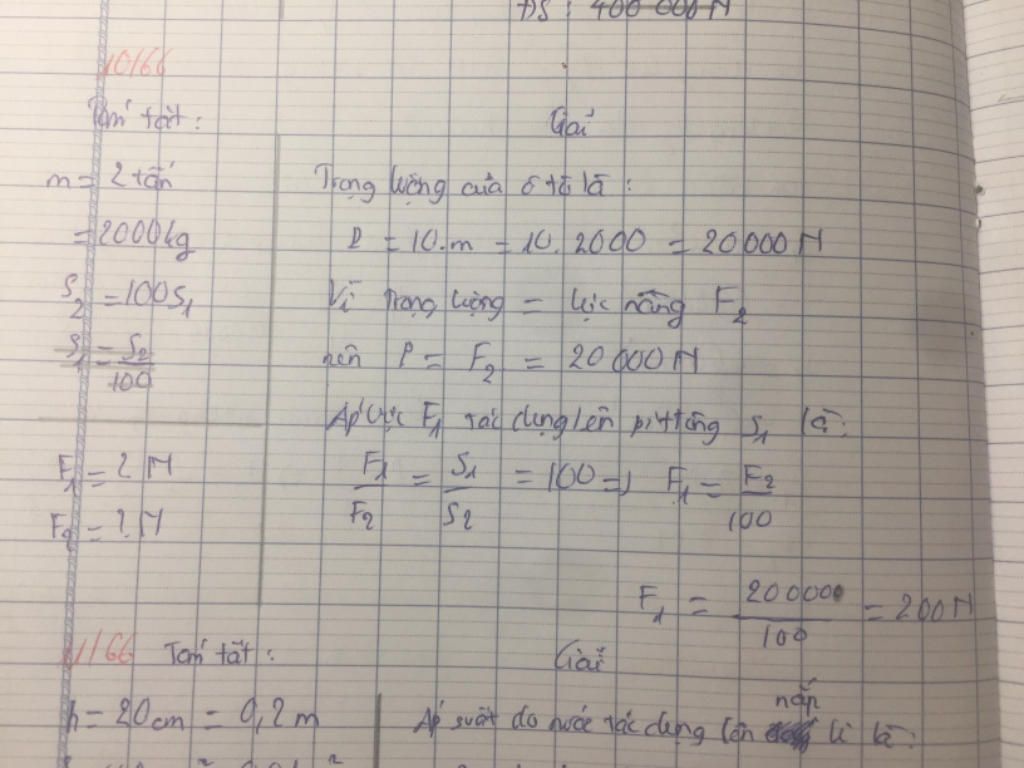 ĐS : 400 000 N
10/66
Tóm tắt :
Giải
m = 2 tấn
= 2000kg
S₂ = 100S₁
S₁ = S₂/100
F₁ = ? N
F₂ = ? N
Trọng lượng của ô tô là :
P = 10.m = 10. 2000 = 20 000 N
Vì trọng lượng = lực nâng F₂
nên P = F₂ = 20 000 N
Áp lực F₁ tác dụng lên pittông S₁ là:
F₁/F₂ = S₁/S₂ = 100 => F₁ = F₂/100
F₁ = 20 000/100 = 200 N
11/66 Tóm tắt :
Giải
h = 20cm = 0,2 m
Áp suất do nước tác dụng lên nắp li là :